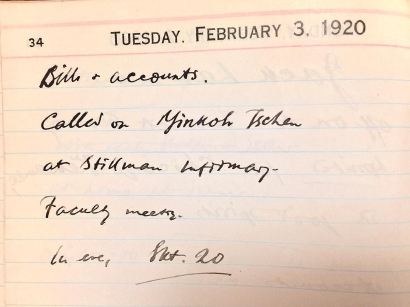 34
TUESDAY. FEBRUARY 3, 1920
Bills & accounts.
Called on Yinkoh Tschen
at Stillman Infirmary.
Faculty meetg.
In eve, Skt. 20